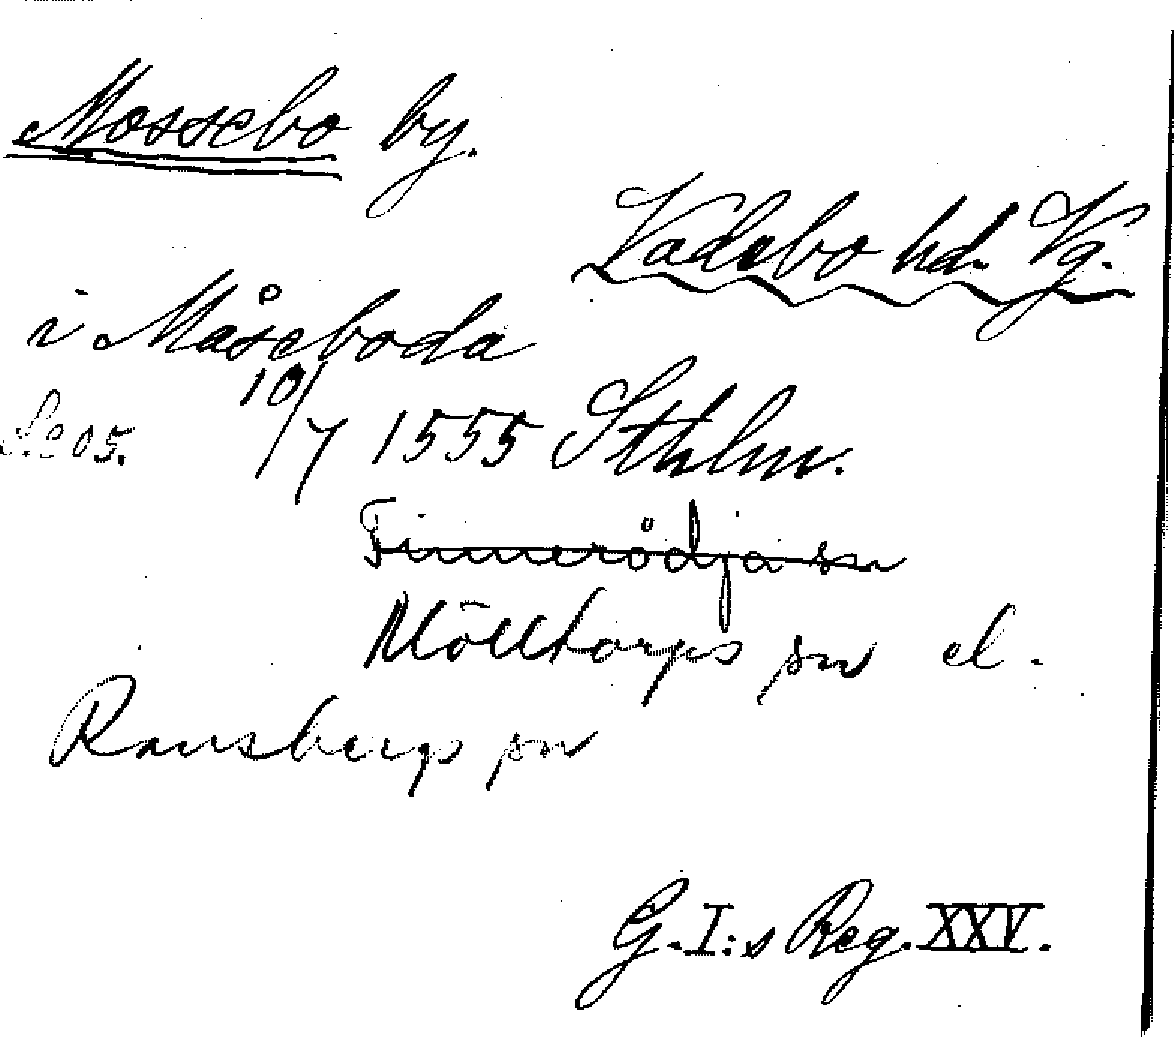 Mossebo by.
Vadsbo hd. Vg.
i Måseboda
s. 205. 10/7 1555 Sthlm.
Finnerödja sn
Mölltorps sn el.
Ransbergs sn
G.I:s Reg. XXV.